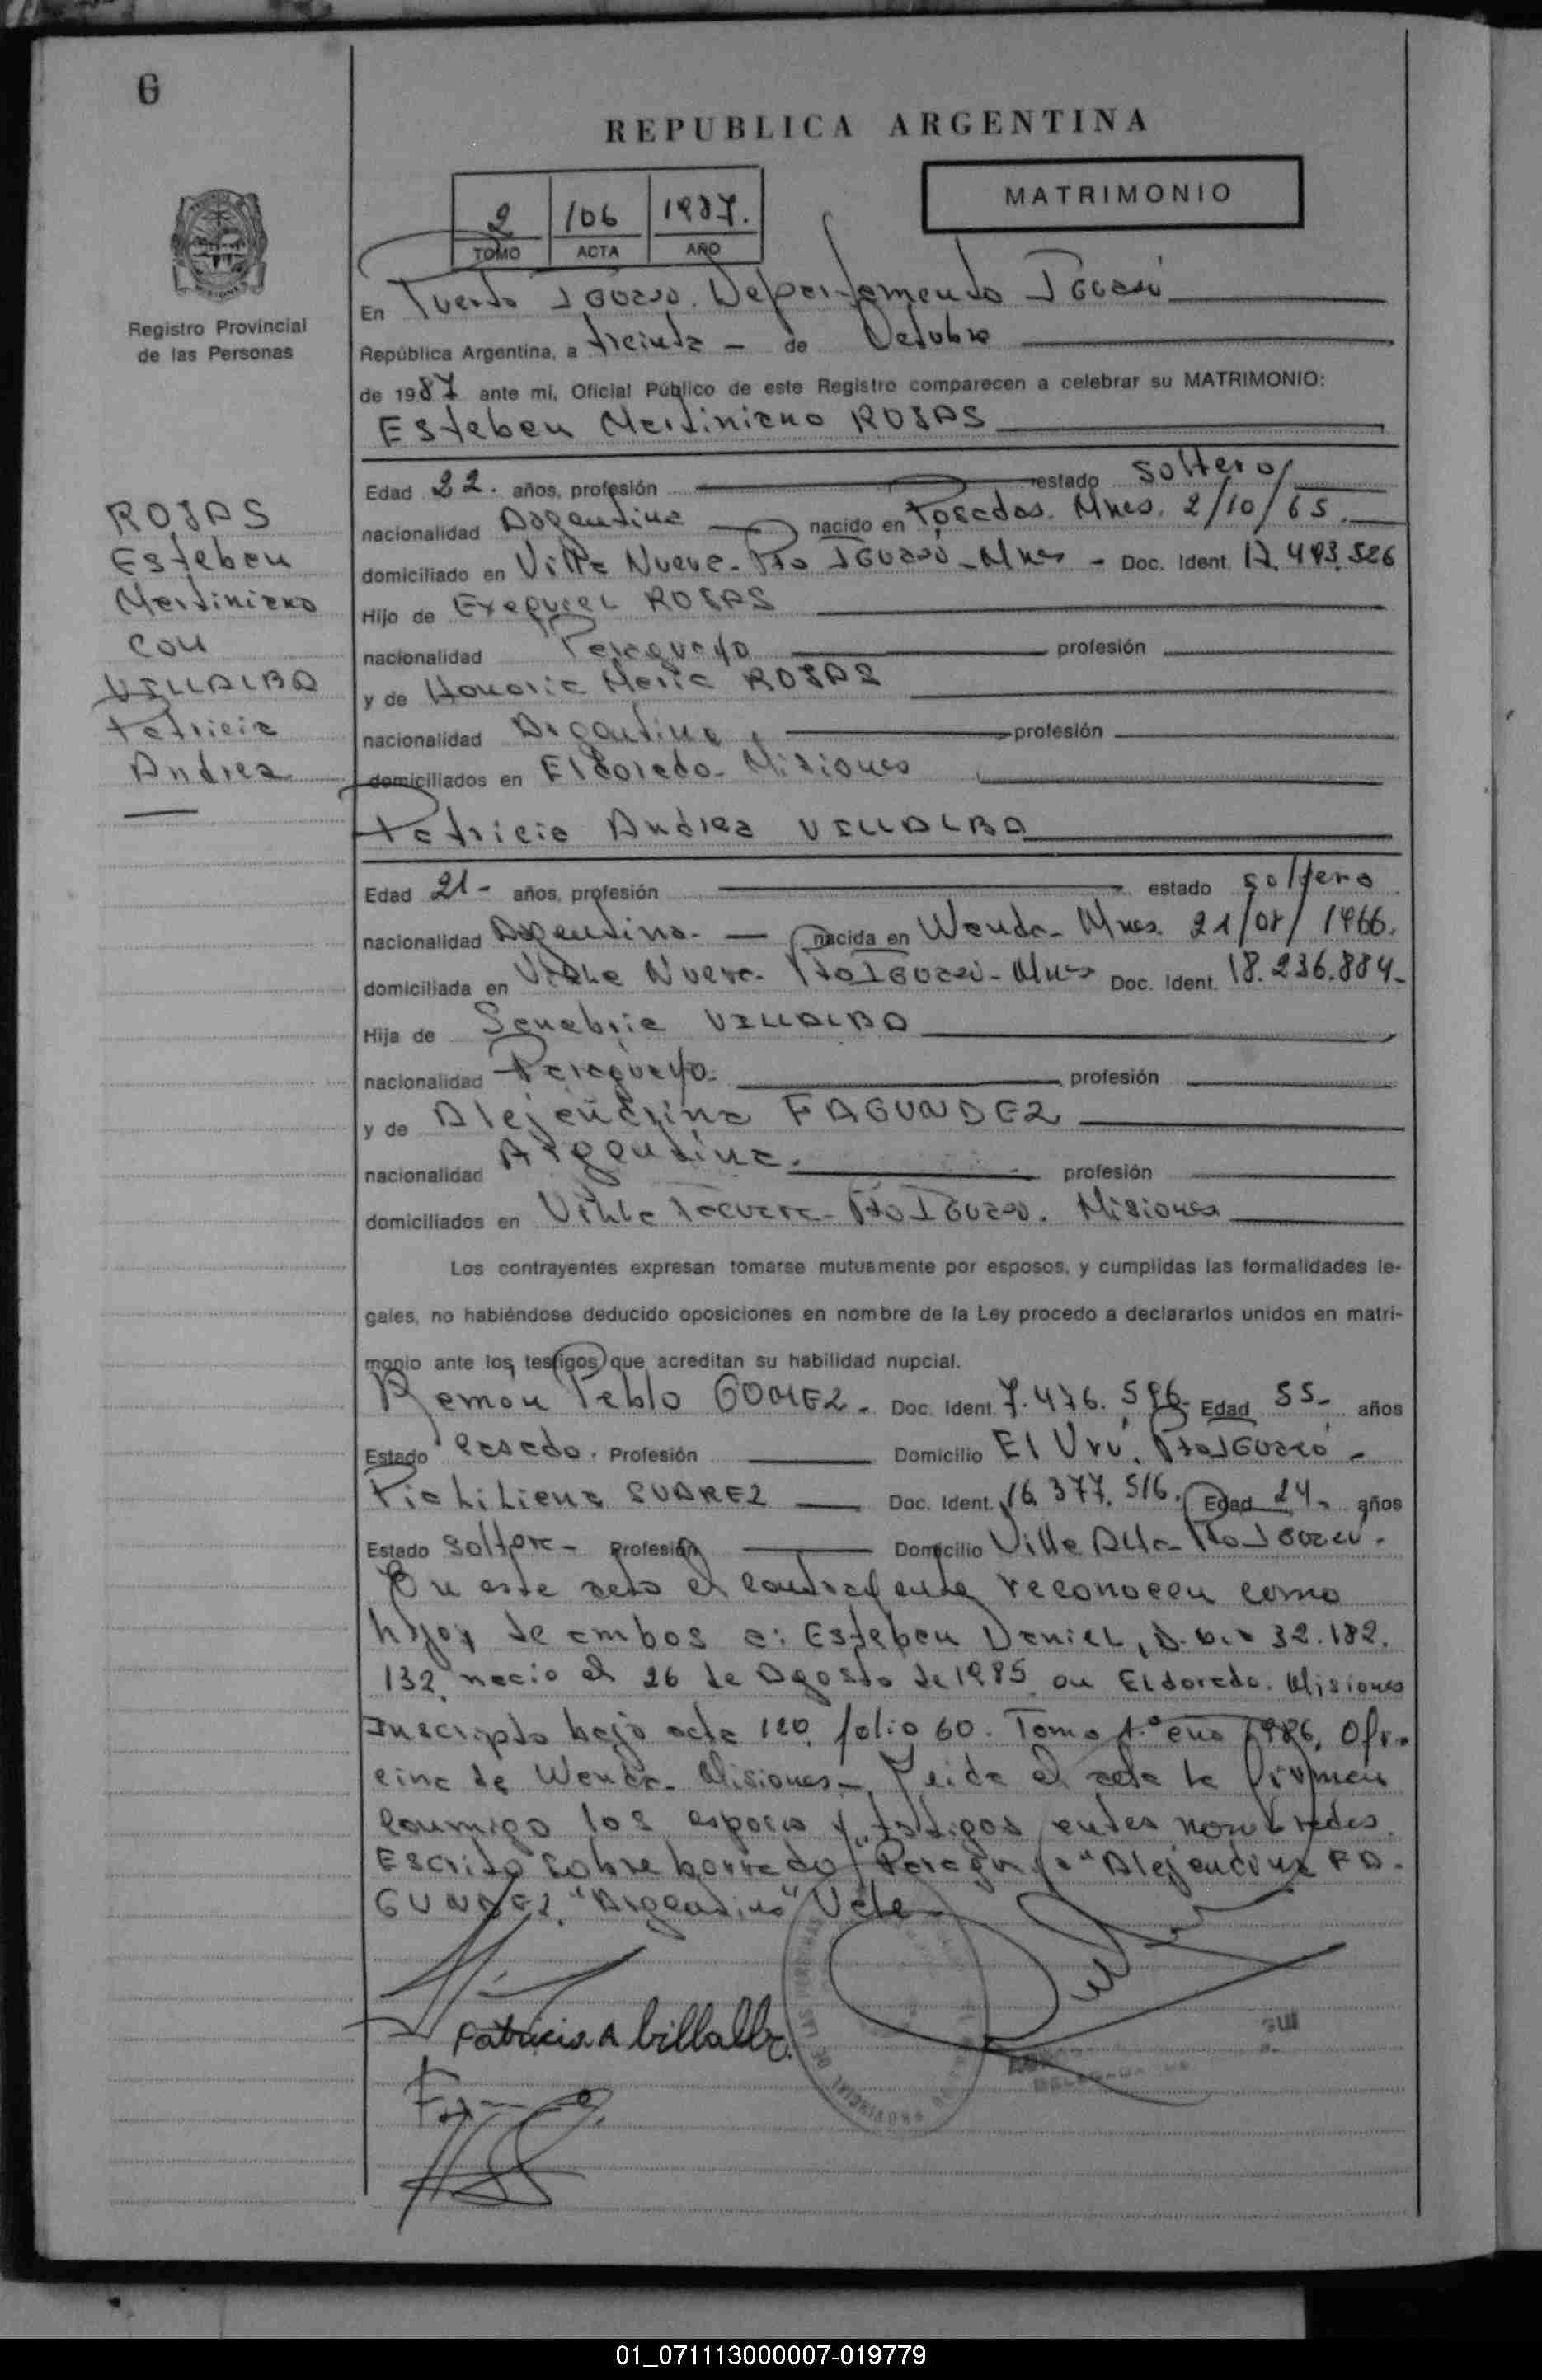 6
REPUBLICA ARGENTINA
MATRIMONIO
2 106 1987.
TOMO ACTA AÑO
Registro Provincial
de las Personas
En Puerto IGUAZU. Departamento IGUAZú
República Argentina, a treinta - de Octubre
de 1987 ante mí, Oficial Público de este Registro comparecen a celebrar su MATRIMONIO:
Esteban Martiniano ROJAS
Edad 22. años, profesión estado soltero
nacionalidad Argentina nacido en Posadas. Mnes. 2/10/65.
domiciliado en Villa Nueva - Pto IGUAZÚ - Mnes - Doc. Ident. 17.493.526
Hijo de Exequiel ROJAS
nacionalidad Paraguayo profesión
y de Honoria Maria ROJAS
nacionalidad Argentina profesión
domiciliados en Eldorado - Misiones
ROJAS
Esteban
Martiniano
con
VILLALBA
Patricia
Andrea
Patricia Andrea VILLALBA
Edad 21 - años, profesión estado soltera
nacionalidad Argentina. - nacida en Wanda - Mnes. 21/08/1966.
domiciliada en Villa Nueva - Pto IGUAZÚ - Mnes Doc. Ident. 18.236.884-
Hija de Senabria VILLALBA
nacionalidad Paraguayo. profesión
y de Alejandrina FAGUNDEZ
nacionalidad Argentina. profesión
domiciliados en Villa - Pto IGUAZU. Misiones
Los contrayentes expresan tomarse mutuamente por esposos, y cumplidas las formalidades le-
gales, no habiéndose deducido oposiciones en nombre de la Ley procedo a declararlos unidos en matri-
monio ante los testigos que acreditan su habilidad nupcial.
Ramon Pablo GOMEZ - Doc. Ident. 7.476.596. Edad 55- años
Estado Casado. Profesión Domicilio El Urú. Pto IGUAZÚ -
SUAREZ Doc. Ident. 16.377.516. Edad 24- años
Estado soltera - Profesión Domicilio Villa Alta - Pto IGUAZU.
En este acto el contrayente reconocen como
hijos de ambos a: Esteban Daniel, 32.182.
132, nacio el 26 de Agosto de 1985 en Eldorado. Misiones
Inscripto bajo acta 120, folio 60. Tomo 1.º año 1986, Ofi-
cina de Wanda - Misiones - Leida el acta la firman
conmigo los esposos y testigos antes nombrados.
Escrito sobre borrado "Alejandrina FA-
GUNDEZ, "Argentina" Vale -
Patricia A Villalba.
01_071113000007-019779